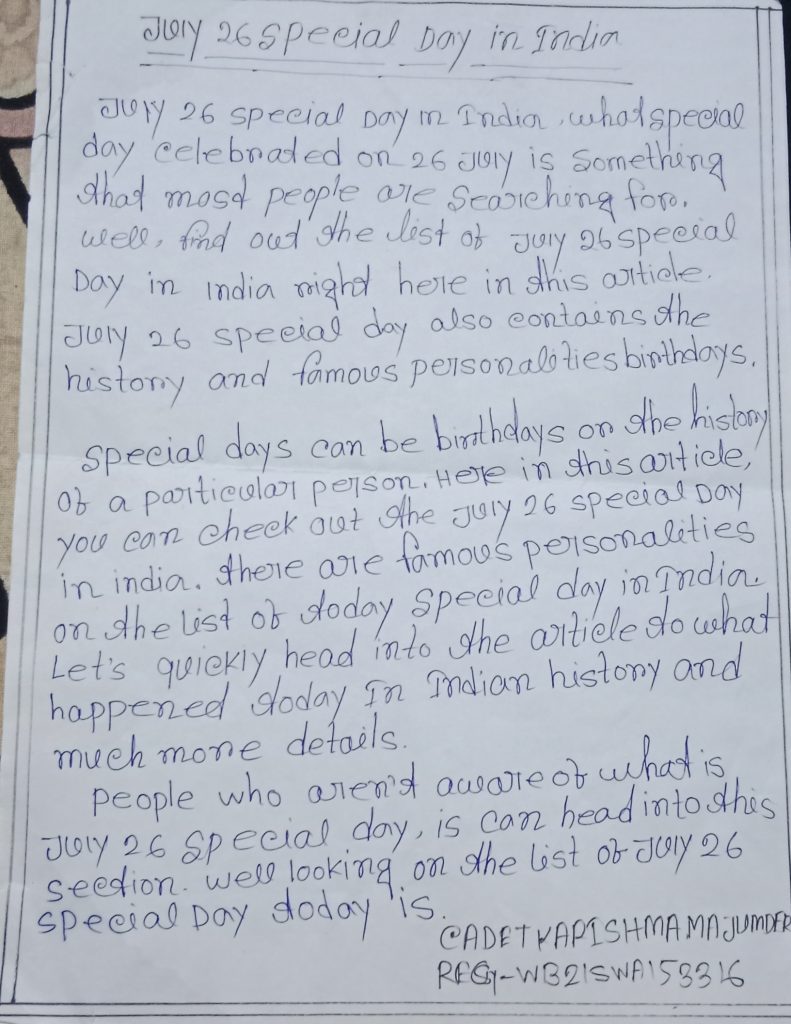 July 26 Special Day in India
July 26 special Day in India, what special
day celebrated on 26 July is something
that most people are searching for.
well, find out the list of July 26 special
Day in india right here in this article.
July 26 special day also contains the
history and famous personalities birthdays.
special days can be birthdays or the history
of a particular person. Here in this article,
you can check out the July 26 special Day
in india. there are famous personalities
on the list of today special day in India.
Let's quickly head into the article to what
happened today In Indian history and
much more details.
people who aren't aware of what is
July 26 special day, is can head into this
section. well looking on the list of July 26
special Day today is.
CADET KARISHMA MAJUMDER
REG-WB21SWA153316